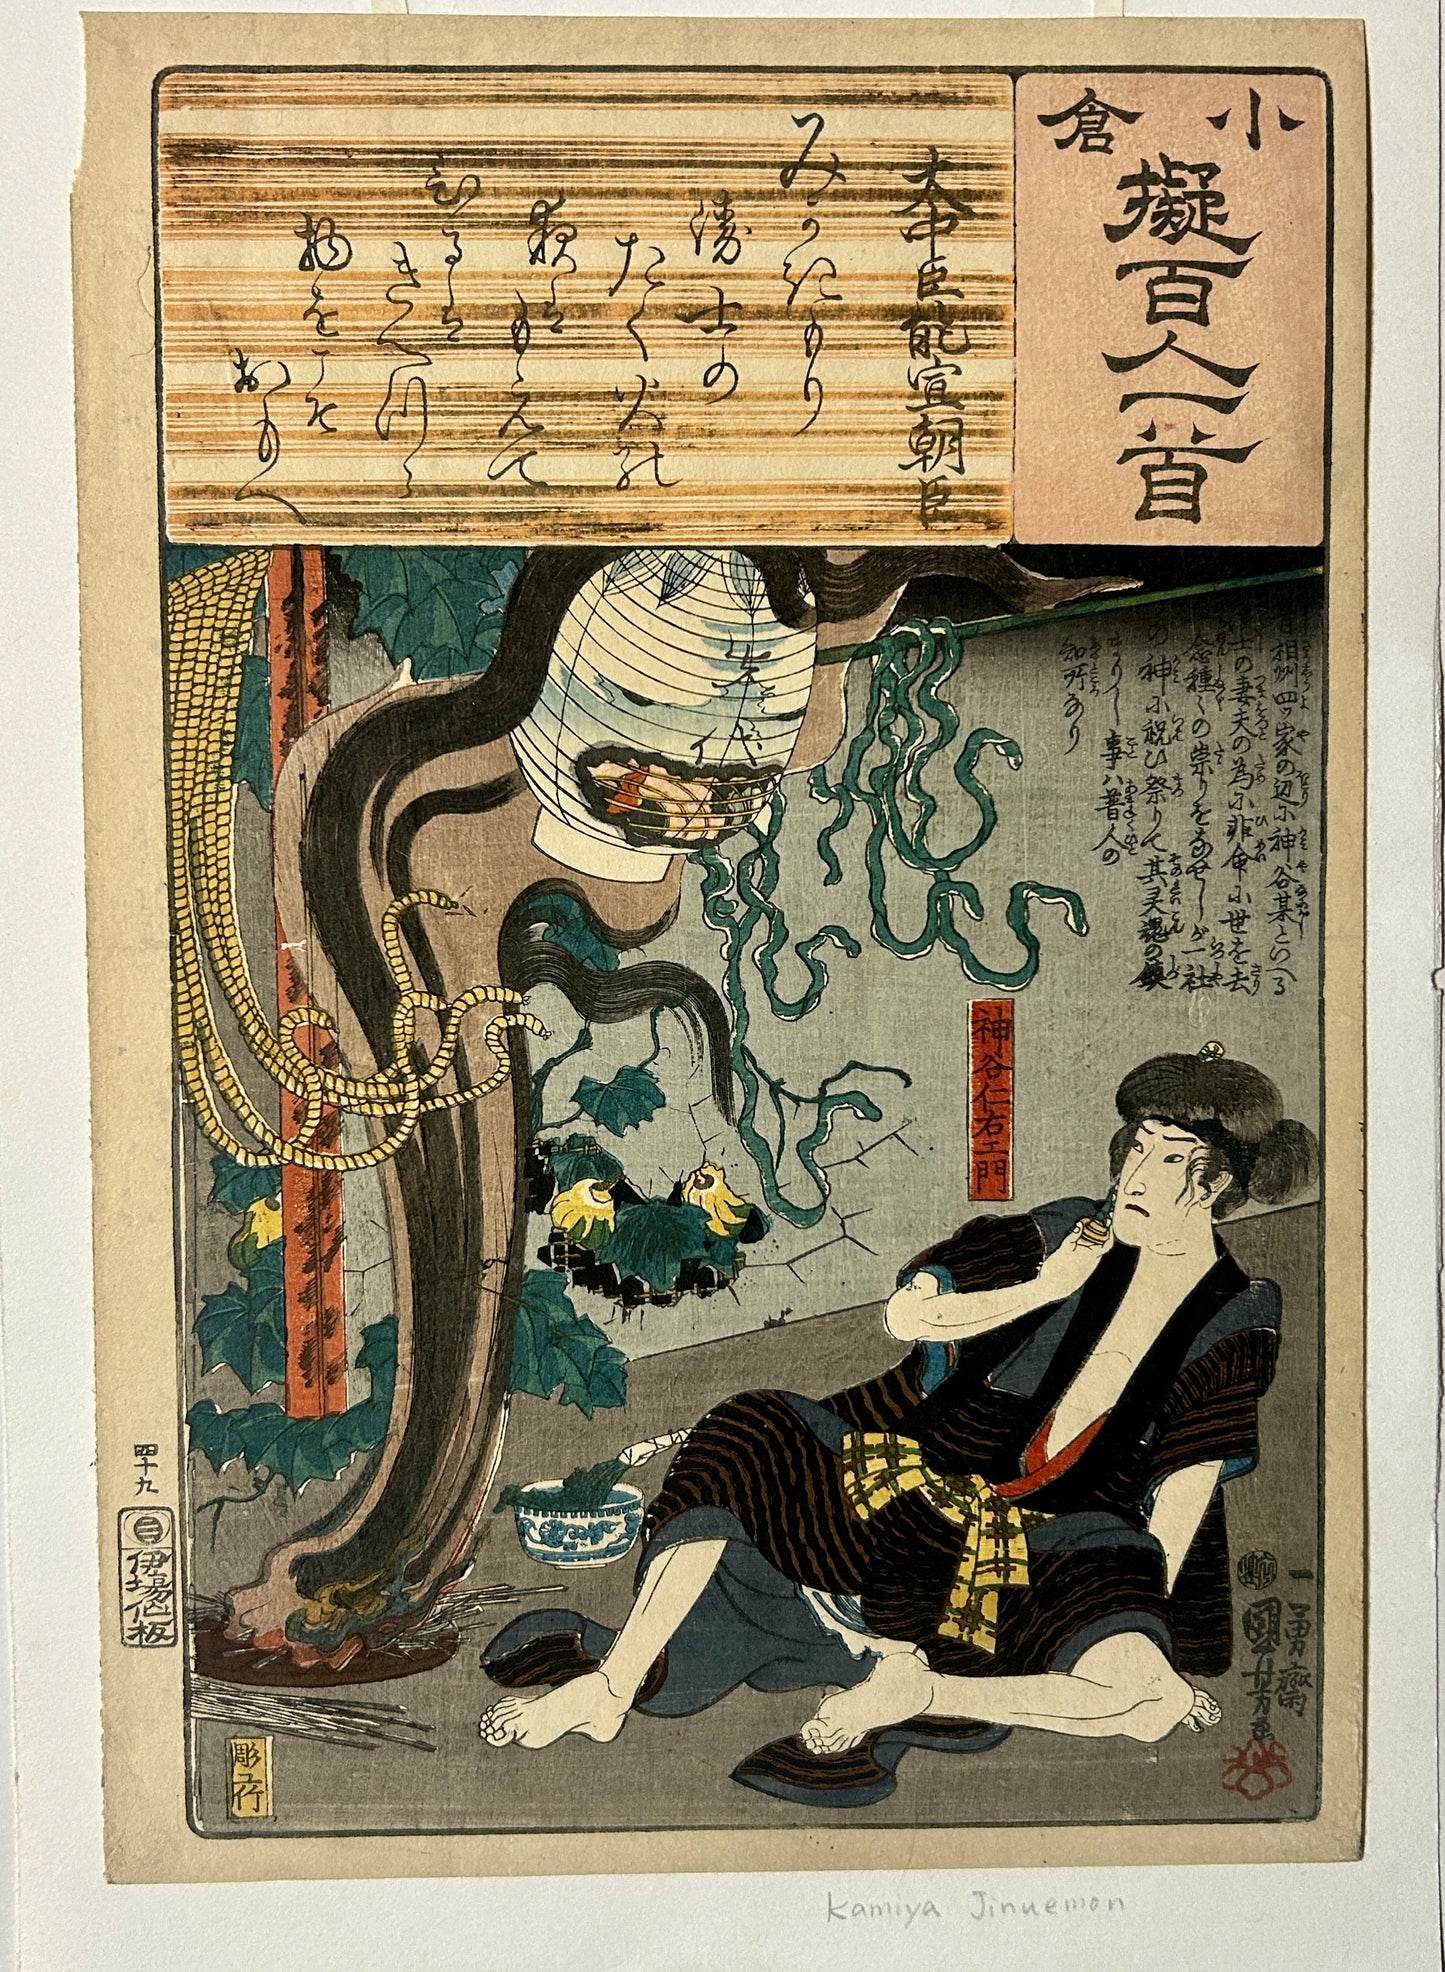 小倉
擬百人一首
大中臣能宣朝臣
みかきもり
衛士の
たく火の
夜はもえて
ひるは
きえつゝ
物をこそ
おもへ
相州四ッ家の辺に神谷某といへる
士の妻夫の為に非命に世を去
念種々の祟りをなせしが一社
の神に祝ひ祭りて其灵魂の鎮
まりし事ハ普人の
知所なり
神谷仁右エ門
四十九
伊場仙板
一勇齋
國芳画
彫工竹
Kamiya Jinuemon